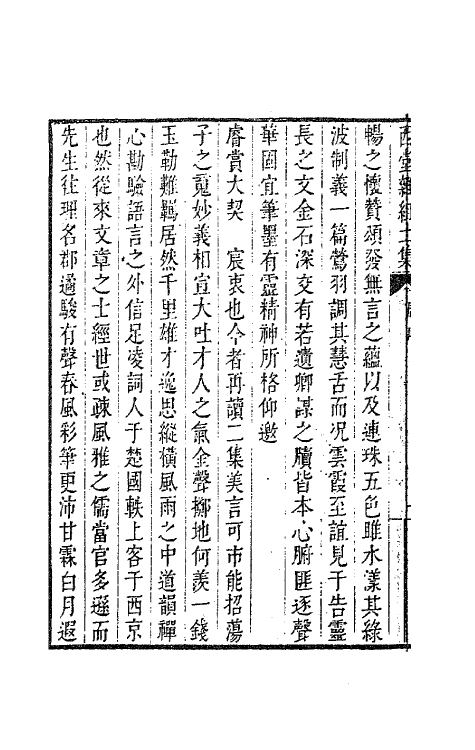 西堂雜組二集
暢之懷贊頌發無言之蘊以及連珠五色雎水漾其綠
波制義一篇鶯羽調其慧舌而况雲霞至誼見于告靈
長之文金石深交有若遺卿謀之牘皆本心腑匪逐聲
華固宜筆墨有靈精神所格仰邀
睿賞大契　宸衷也今者再讀二集美言可市能招蕩
子之䰟妙義相宣大吐才人之氣金聲擲地何羨一錢
玉勒難羈居然千里雄才逸思縱橫風雨之中道韻禪
心勘驗語言之外信足凌詞人于楚國軼上客于西京
也然從來文章之士經世或疎風雅之儒當官多遜而
先生往理名郡遹駿有聲春風彩筆更沛甘霖白月遐